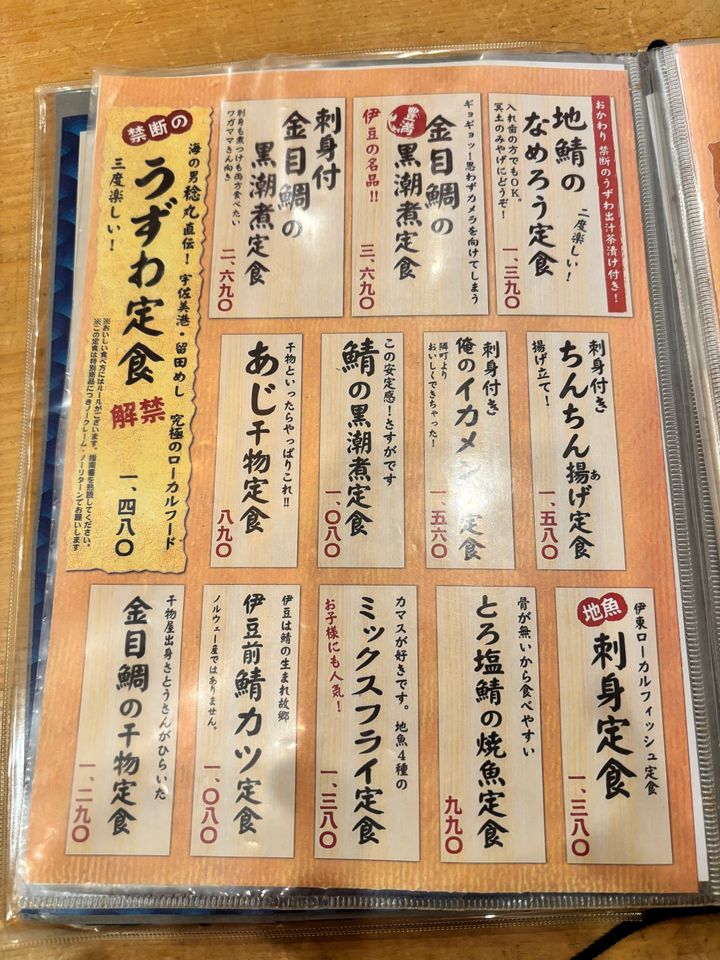 おかわり 禁断のうずわ出汁茶漬け付き！
地鯖の
なめろう定食
二度楽しい！
一、三九〇
入れ歯の方でもOK。
冥土のみやげにどうぞ！
ギョギョッ！思わずカメラを向けてしまう
豊満
金目鯛の
黒潮煮定食
伊豆の名品！！
三、六九〇
刺身付
金目鯛の
黒潮煮定食
刺身も煮つけも両方食べたい
ワガママさん向き
二、六九〇
禁断の
うずわ定食
解禁
海の男稔丸直伝！
宇佐美港・留田めし
究極のローカルフード
三度楽しい！
一、四八〇
※おいしい食べ方にはルールがございます。指南書を熟読してください。
※この定食は特別商品につきノークレーム・ノーリターンでお願いします
刺身付き
ちんちん揚げ定食
あ
揚げ立て！
一、五八〇
刺身付き
俺のイカメン
定食
隣町より
おいしくできちゃった！
一、五六〇
この安定感！さすがです
鯖の黒潮煮定食
一、〇八〇
干物といったらやっぱりこれ!!
あじ干物定食
八九〇
伊東ローカルフィッシュ定食
地魚
刺身定食
一、三八〇
骨が無いから食べやすい
とろ塩鯖の焼魚定食
九九〇
カマスが好きです。地魚4種の
ミックスフライ定食
お子様にも人気！
一、三八〇
伊豆は鯖の生まれ故郷
伊豆前鯖カツ定食
ノルウェー産ではありません。
一、〇八〇
干物屋出身さとうさんがひらいた
金目鯛の干物定食
一、二九〇